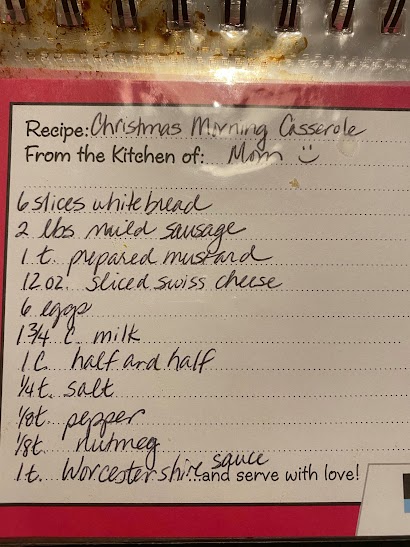 Recipe: Christmas Morning Casserole
From the Kitchen of: Mom :)
6 slices white bread
2 lbs maild sausage
1 t. prepared mustard
12 oz. sliced swiss cheese
6 eggs
1 3/4 c. milk
1 C. half and half
1/4 t. salt
1/8 t. pepper
1/8 t. nutmeg
1 t. Worcestershire sauce
...and serve with love!